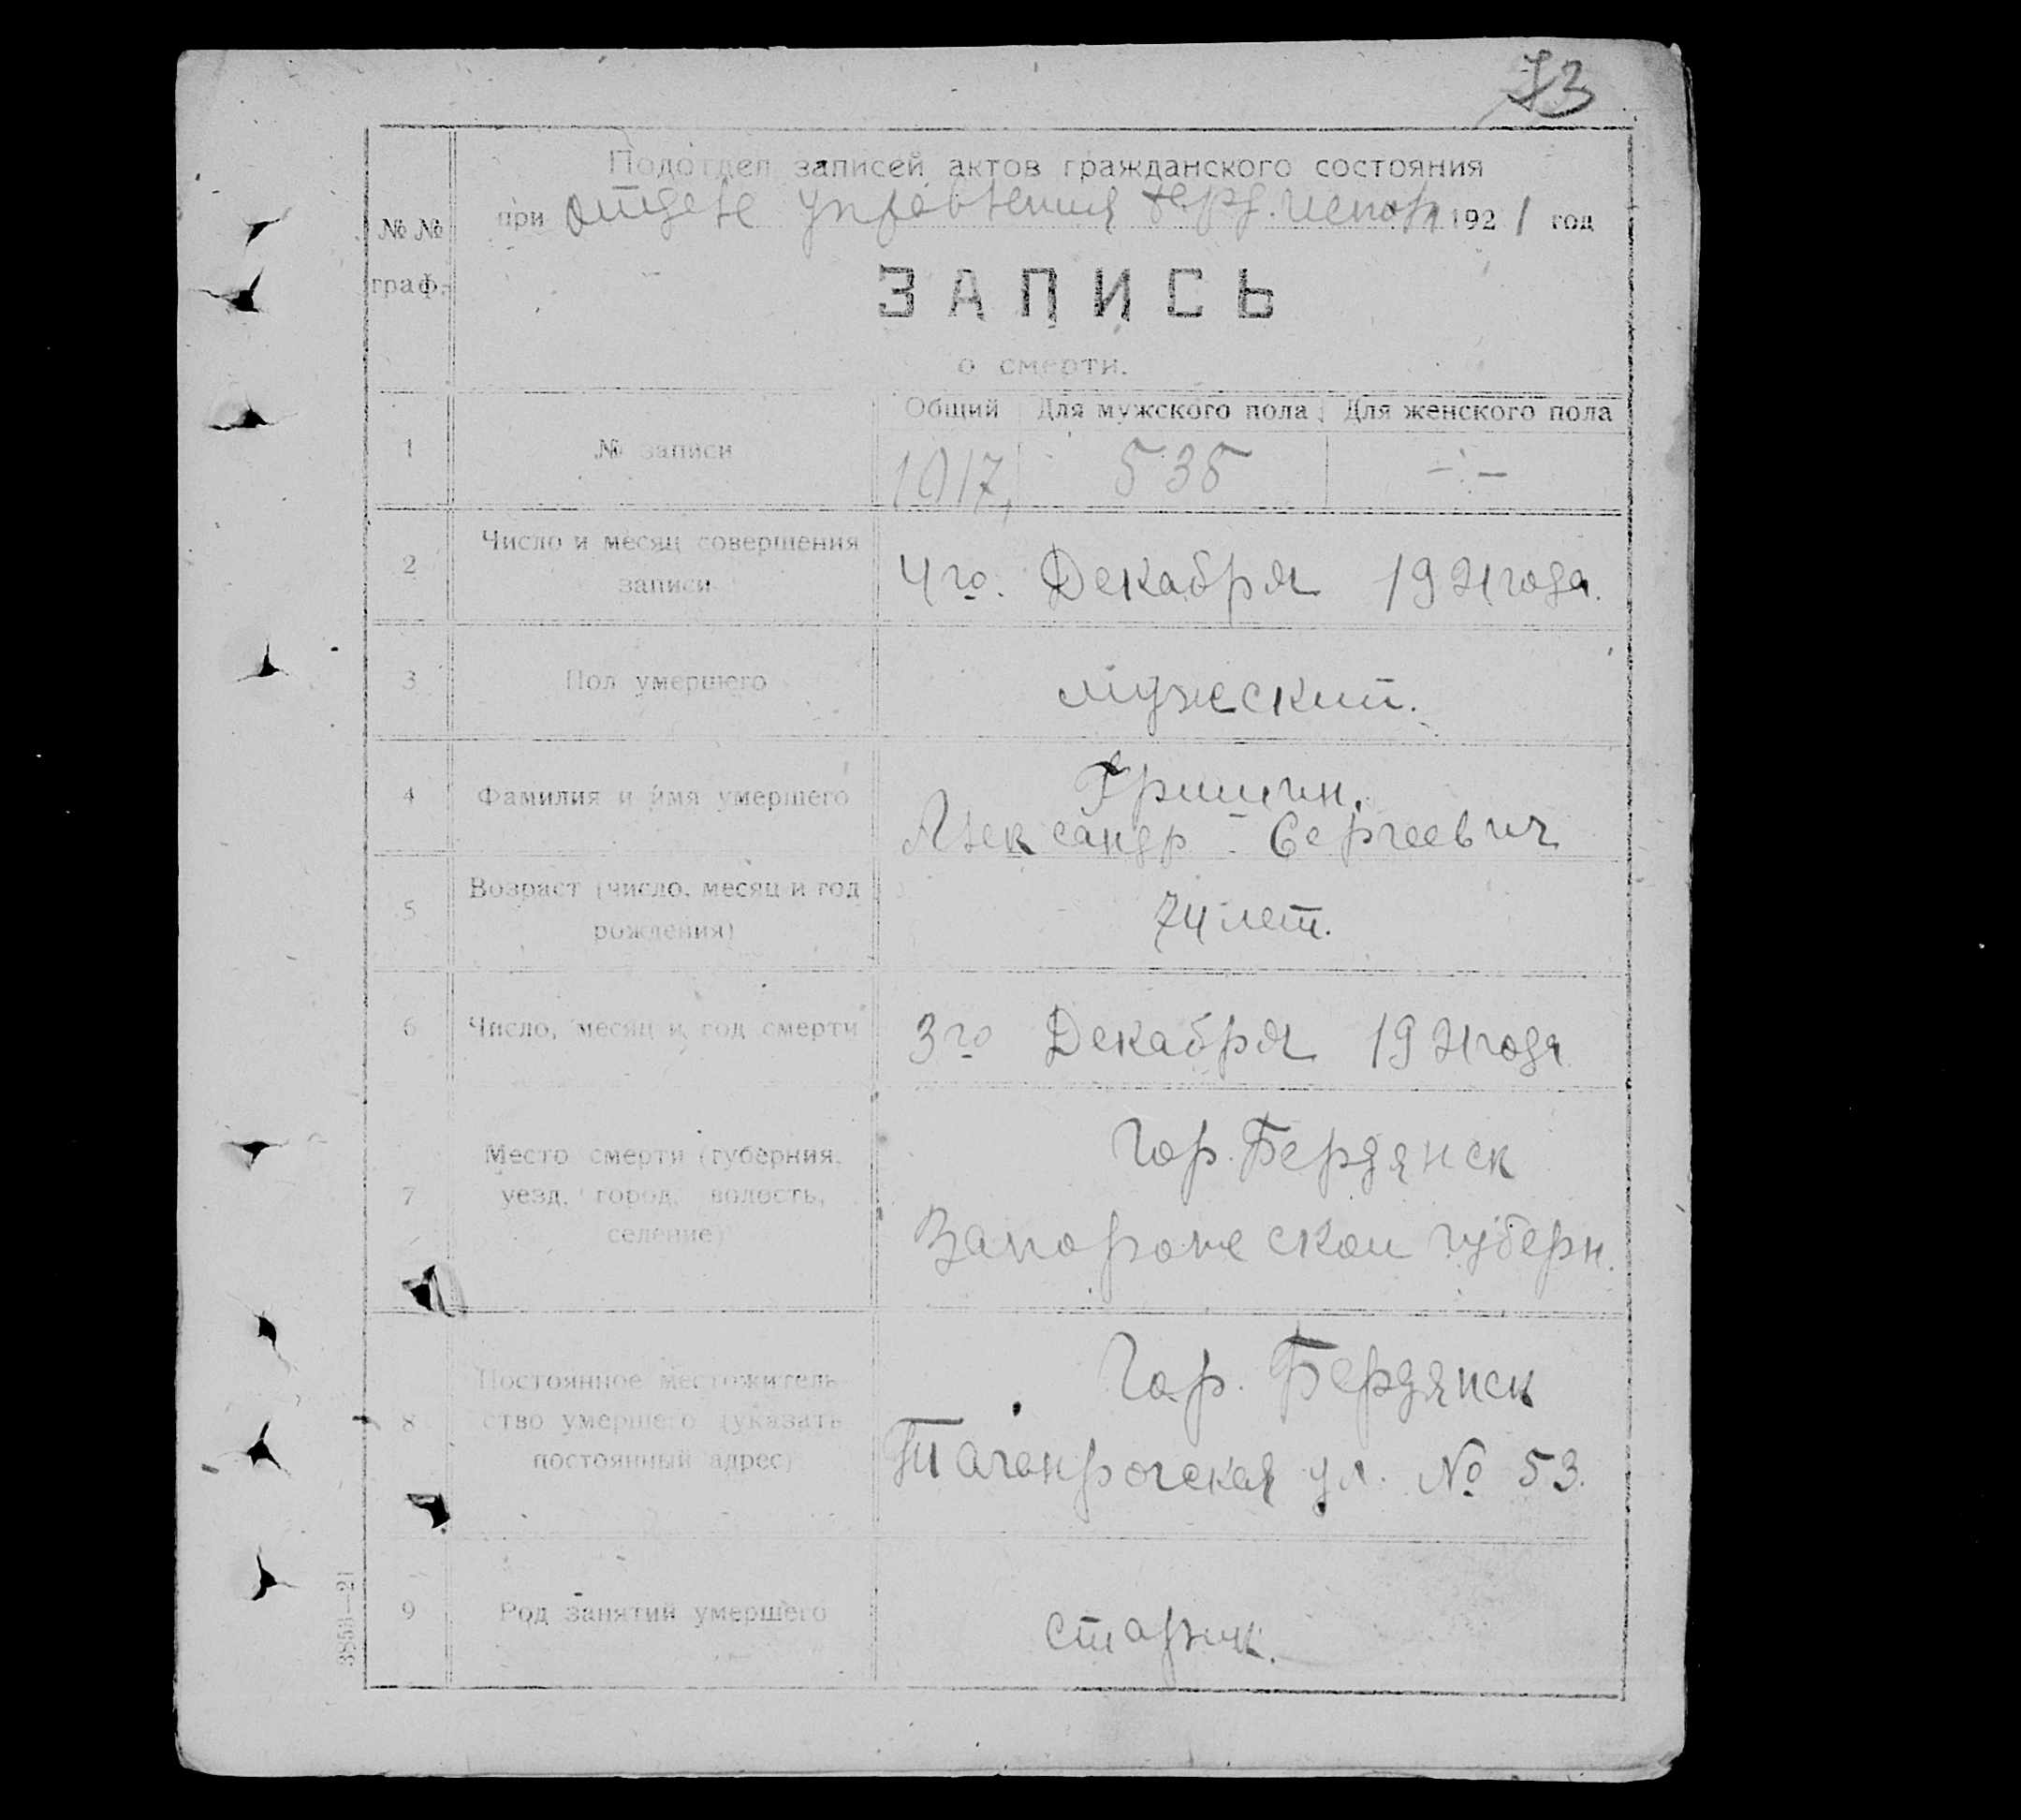 73
Подотдел записей актов гражданского состояния
при отделе управления Берд. исполк 1921 год
№ № граф.
ЗАПИСЬ
о смерти.
Общий Для мужского пола Для женского пола
1 № записи 1017, 535 -:-
2 Число и месяц совершения записи 4го. Декабря 1921 года.
3 Пол умершего мужеский.
4 Фамилия и имя умершего Гришин,
Александр - Сергеевич
5 Возраст (число, месяц и год рождения) 74 лет.
6 Число, месяц и год смерти 3го Декабря 1921 года
7 Место смерти (губерния, уезд, город, волость, селение) Гор. Бердянск
Запорожеской губерн.
8 Постоянное местожитель-
ство умершего (указать постоянный адрес) Гор. Бердянск
Таганрогская ул. № 53.
9 Род занятий умершего старик.